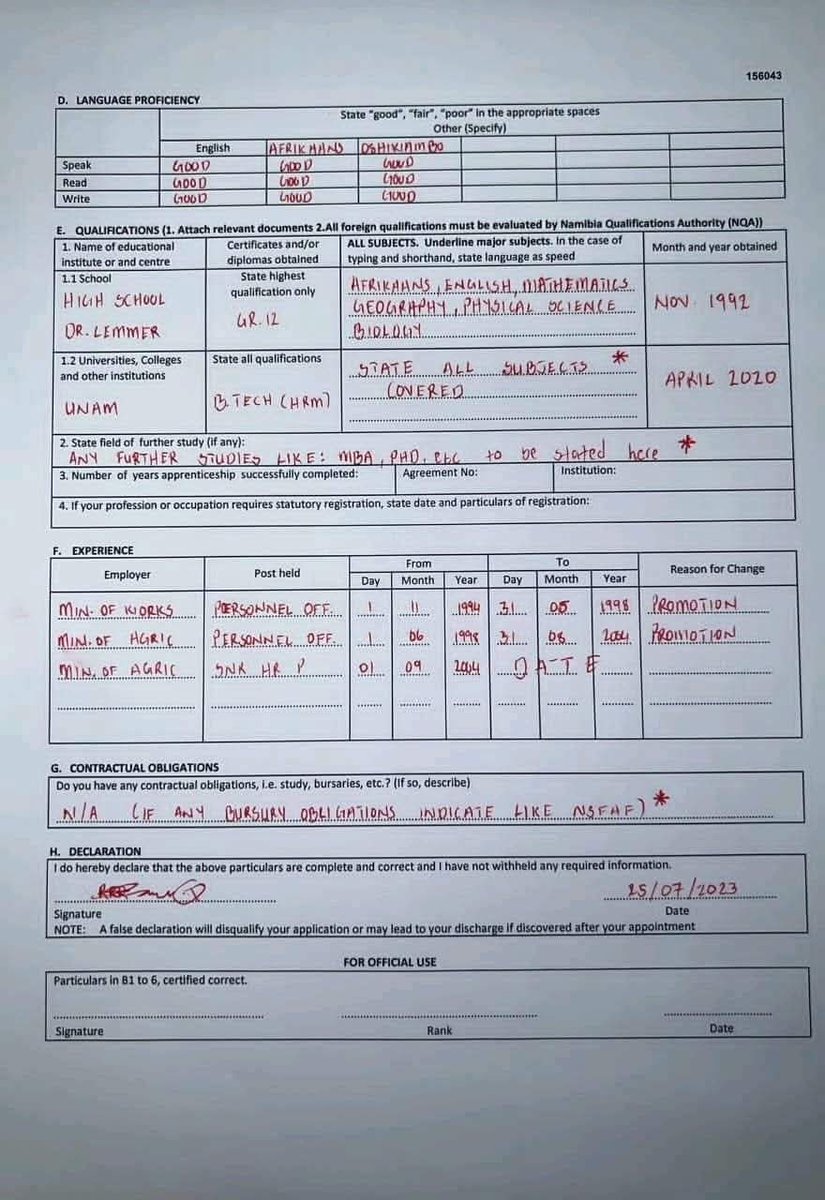 156043
D. LANGUAGE PROFICIENCY
State "good", "fair", "poor" in the appropriate spaces
Other (Specify)
English AFRIKAANS OSHIKWAMBO
Speak GOOD GOOD GOOD
Read GOOD GOOD GOOD
Write GOOD GOOD GOOD
E. QUALIFICATIONS (1. Attach relevant documents 2.All foreign qualifications must be evaluated by Namibia Qualifications Authority (NQA))
1. Name of educational institute or and centre
Certificates and/or diplomas obtained
ALL SUBJECTS. Underline major subjects. In the case of typing and shorthand, state language as speed
Month and year obtained
1.1 School
HIGH SCHOOL
DR. LEMMER
State highest qualification only
GR.12
AFRIKAANS, ENGLISH, MATHEMATICS
GEOGRAPHY, PHYSICAL SCIENCE
BIOLOGY
NOV. 1992
1.2 Universities, Colleges and other institutions
UNAM
State all qualifications
B.TECH (HRM)
STATE ALL SUBJECTS *
COVERED
APRIL 2020
2. State field of further study (if any):
ANY FURTHER STUDIES LIKE: MBA, PHD, etc to be stated here *
3. Number of years apprenticeship successfully completed: Agreement No: Institution:
4. If your profession or occupation requires statutory registration, state date and particulars of registration:
F. EXPERIENCE
Employer Post held From To Reason for Change
Day Month Year Day Month Year
MIN. OF WORKS PERSONNEL OFF. 1 11 1994 31 05 1998 PROMOTION
MIN. OF AGRIC PERSONNEL OFF. 1 06 1998 31 08 2004 PROMOTION
MIN. OF AGRIC SNR HR P 01 09 2004 DATE
G. CONTRACTUAL OBLIGATIONS
Do you have any contractual obligations, i.e. study, bursaries, etc.? (If so, describe)
N/A (IF ANY BURSURY OBLIGATIONS INDICATE LIKE NSFAF) *
H. DECLARATION
I do hereby declare that the above particulars are complete and correct and I have not withheld any required information.
25/07/2023
Signature Date
NOTE: A false declaration will disqualify your application or may lead to your discharge if discovered after your appointment
FOR OFFICIAL USE
Particulars in B1 to 6, certified correct.
Signature Rank Date